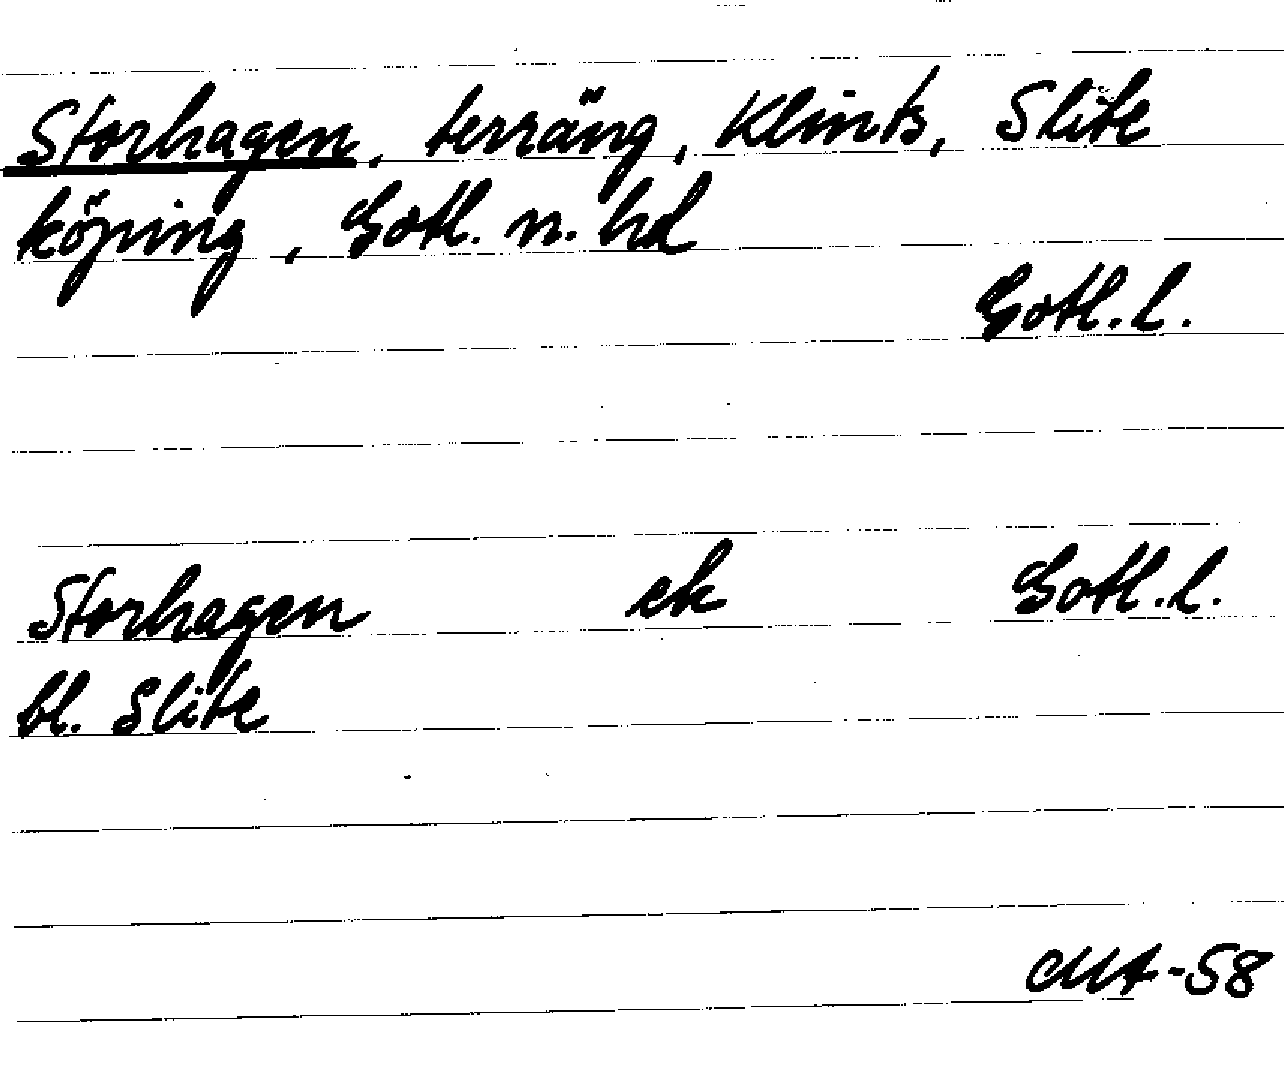 Storhagen, terräng, Klints, Slite
köping, Gotl. n. hd
Gotl. l.
Storhagen ek Gotl. l.
bl. Slite
MA-58